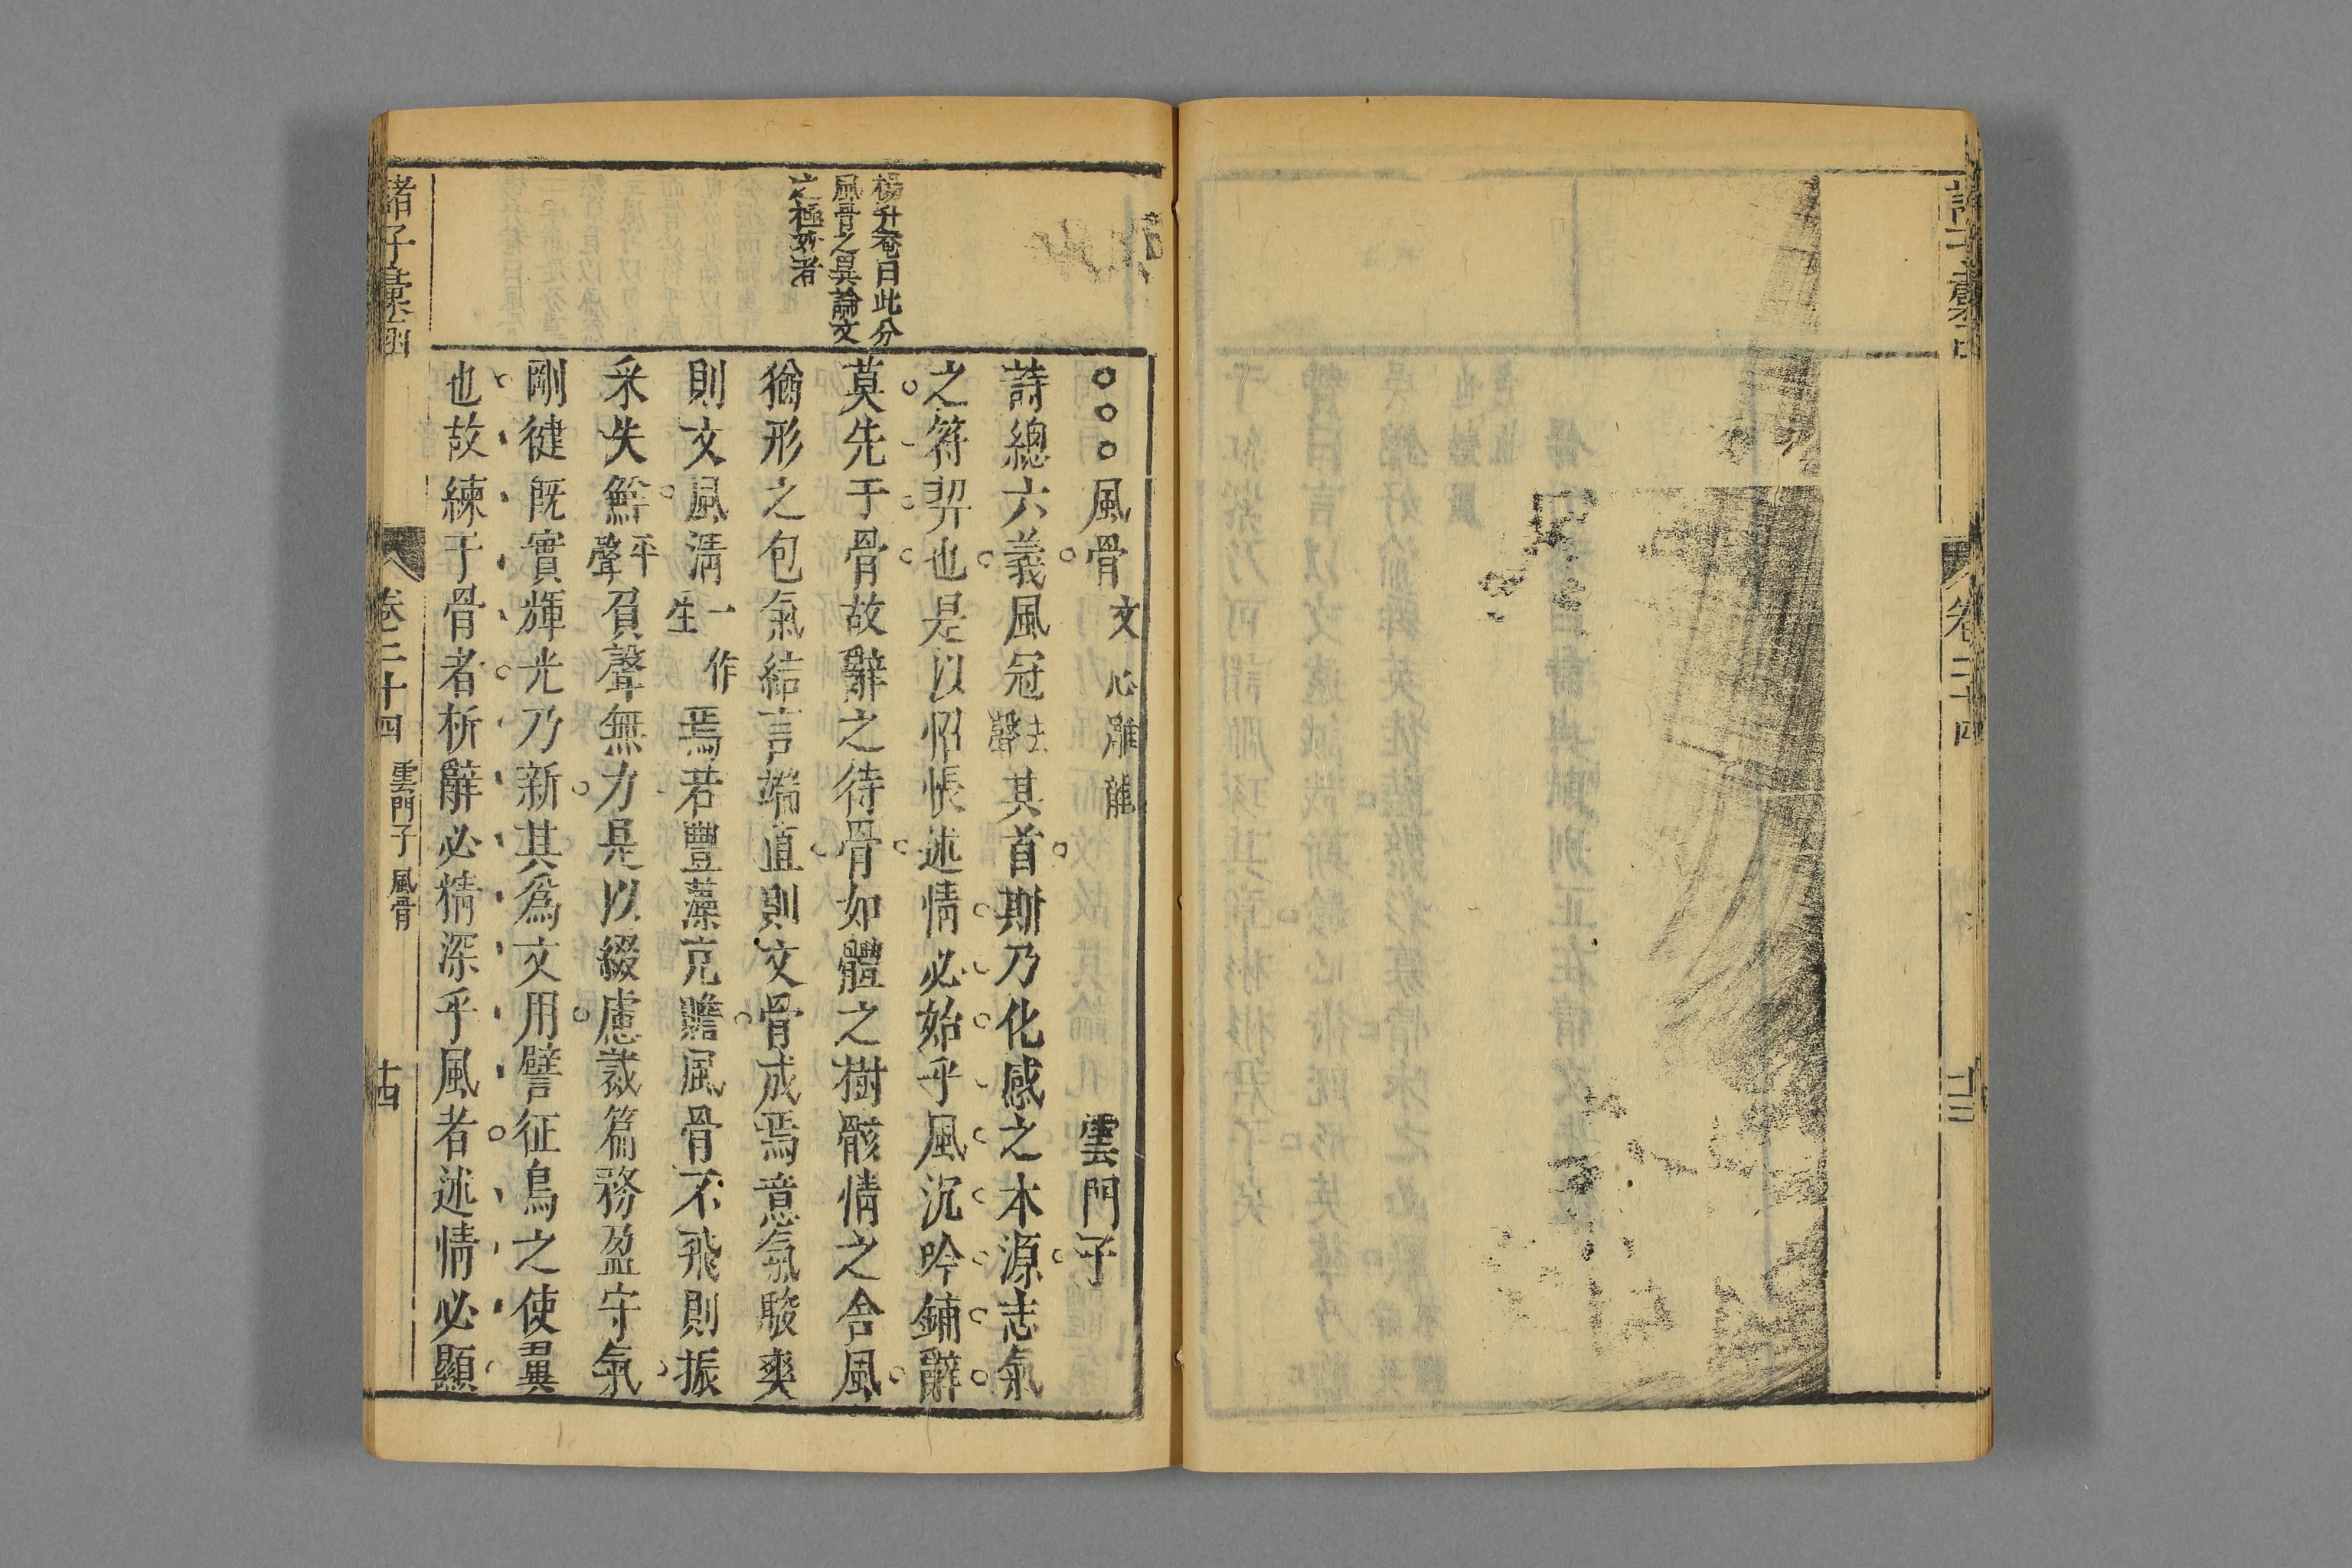 諸子彙函
卷二十四
十三
楊升菴曰此分
風骨之異論文
之極妙者
○○○風骨 文心雕龍 雲門子
詩總六義風冠去聲其首斯乃化感之本源志氣
之符契也是以怊悵述情必始乎風沉吟鋪辭
莫先于骨故辭之待骨如體之樹骸情之含風
猶形之包氣結言端直則文骨成焉意氣駿爽
則文風淸一作生焉若豐藻克贍風骨不飛則振
采失鮮平聲負聲無力是以綴慮裁篇務盈守氣
剛健既實輝光乃新其爲文用譬征鳥之使翼
也故練于骨者析辭必精深乎風者述情必顯
諸子彙函
卷二十四
雲門子 風骨
十四